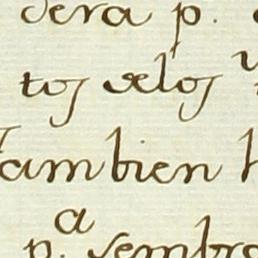 dera p.
tos delos
Tambien h
a
p. sembra